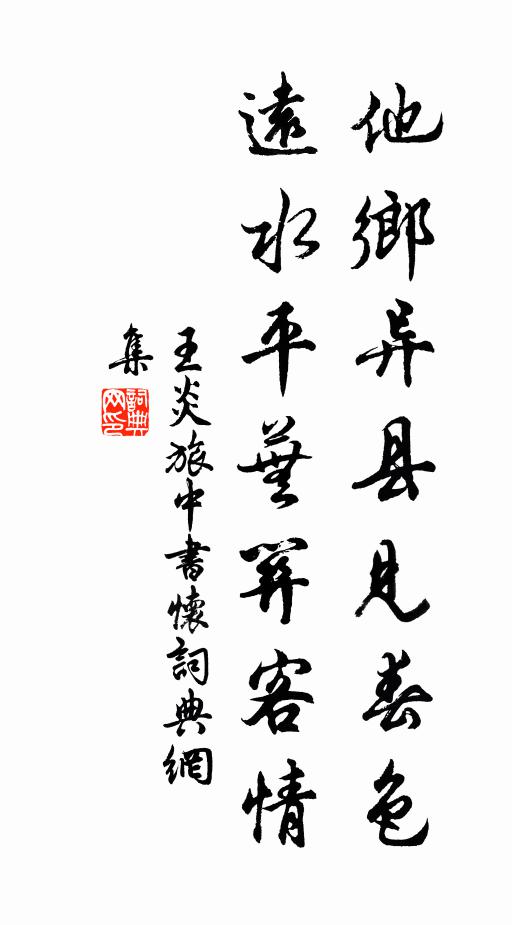 他鄉异县見春色
遠水平蕪關客情
王炎旅中書懷詞典網
集
詞典
网印